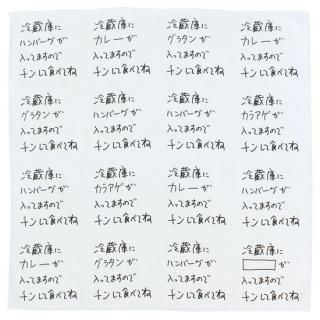 冷蔵庫に
ハンバーグが
入ってますので
チンして食べてね
冷蔵庫に
カレーが
入ってますので
チンして食べてね
冷蔵庫に
グラタンが
入ってますので
チンして食べてね
冷蔵庫に
ハンバーグが
入ってますので
チンして食べてね
冷蔵庫に
グラタンが
入ってますので
チンして食べてね
冷蔵庫に
ハンバーグが
入ってますので
チンして食べてね
冷蔵庫に
ハンバーグが
入ってますので
チンして食べてね
冷蔵庫に
カラアゲが
入ってますので
チンして食べてね
冷蔵庫に
ハンバーグが
入ってますので
チンして食べてね
冷蔵庫に
カラアゲが
入ってますので
チンして食べてね
冷蔵庫に
カレーが
入ってますので
チンして食べてね
冷蔵庫に
ハンバーグが
入ってますので
チンして食べてね
冷蔵庫に
カレーが
入ってますので
チンして食べてね
冷蔵庫に
グラタンが
入ってますので
チンして食べてね
冷蔵庫に
ハンバーグが
入ってますので
チンして食べてね
冷蔵庫に
が
入ってますので
チンして食べてね